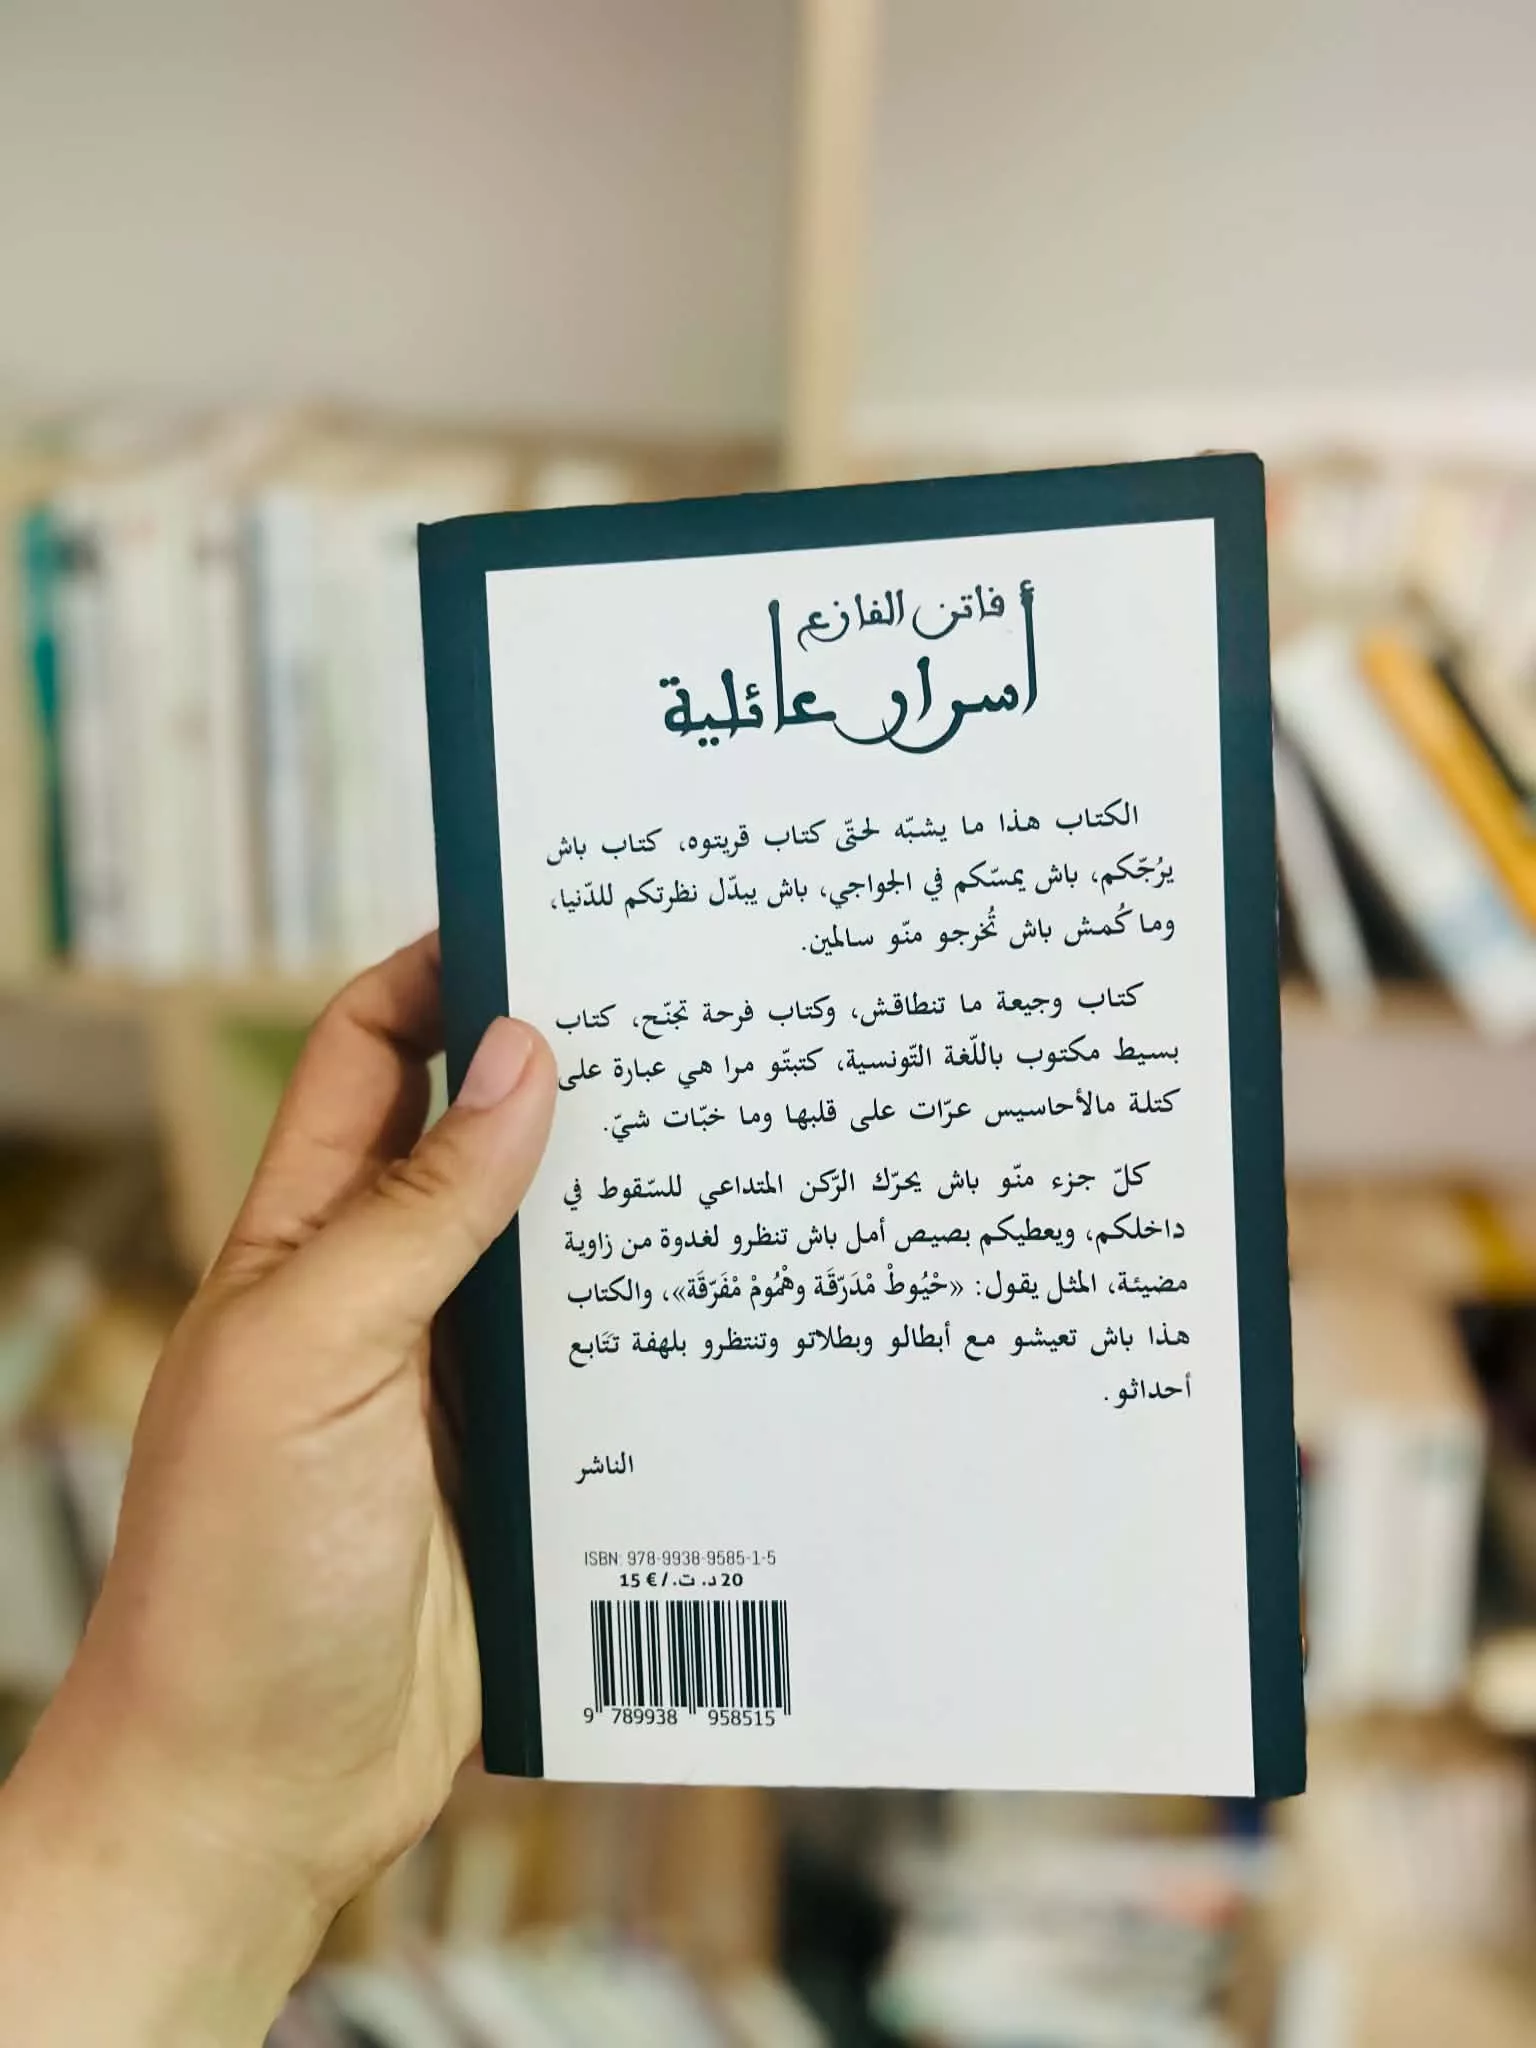 فاتن الفازع
أسرار عائلية
الكتاب هذا ما يشبّه لحتّى كتاب قريتوه، كتاب باش
يرُجّكم، باش يمسّكم في الجواجي، باش يبدّل نظرتكم للدّنيا،
وما كُمش باش تُخرجو منّو سالمين.
كتاب وجيعة ما تنطاقش، وكتاب فرحة تجنّح، كتاب
بسيط مكتوب باللّغة التّونسية، كتبتّو مرا هي عبارة على
كتلة مالأحاسيس عرّات على قلبها وما خبّات شيّ.
كلّ جزء منّو باش يحرّك الرّكن المتداعي للسّقوط في
داخلكم، ويعطيكم بصيص أمل باش تنظرو لغدوة من زاوية
مضيئة، المثل يقول: «حْيُوطْ مْدَرّقَة وهْمُومْ مْفَرّقَة»، والكتاب
هذا باش تعيشو مع أبطالو وبطلاتو وتنتظرو بلهفة تتَابع
أحداثو.
الناشر
ISBN: 978-9938-9585-1-5
20 د. ت. / € 15
9 789938 958515